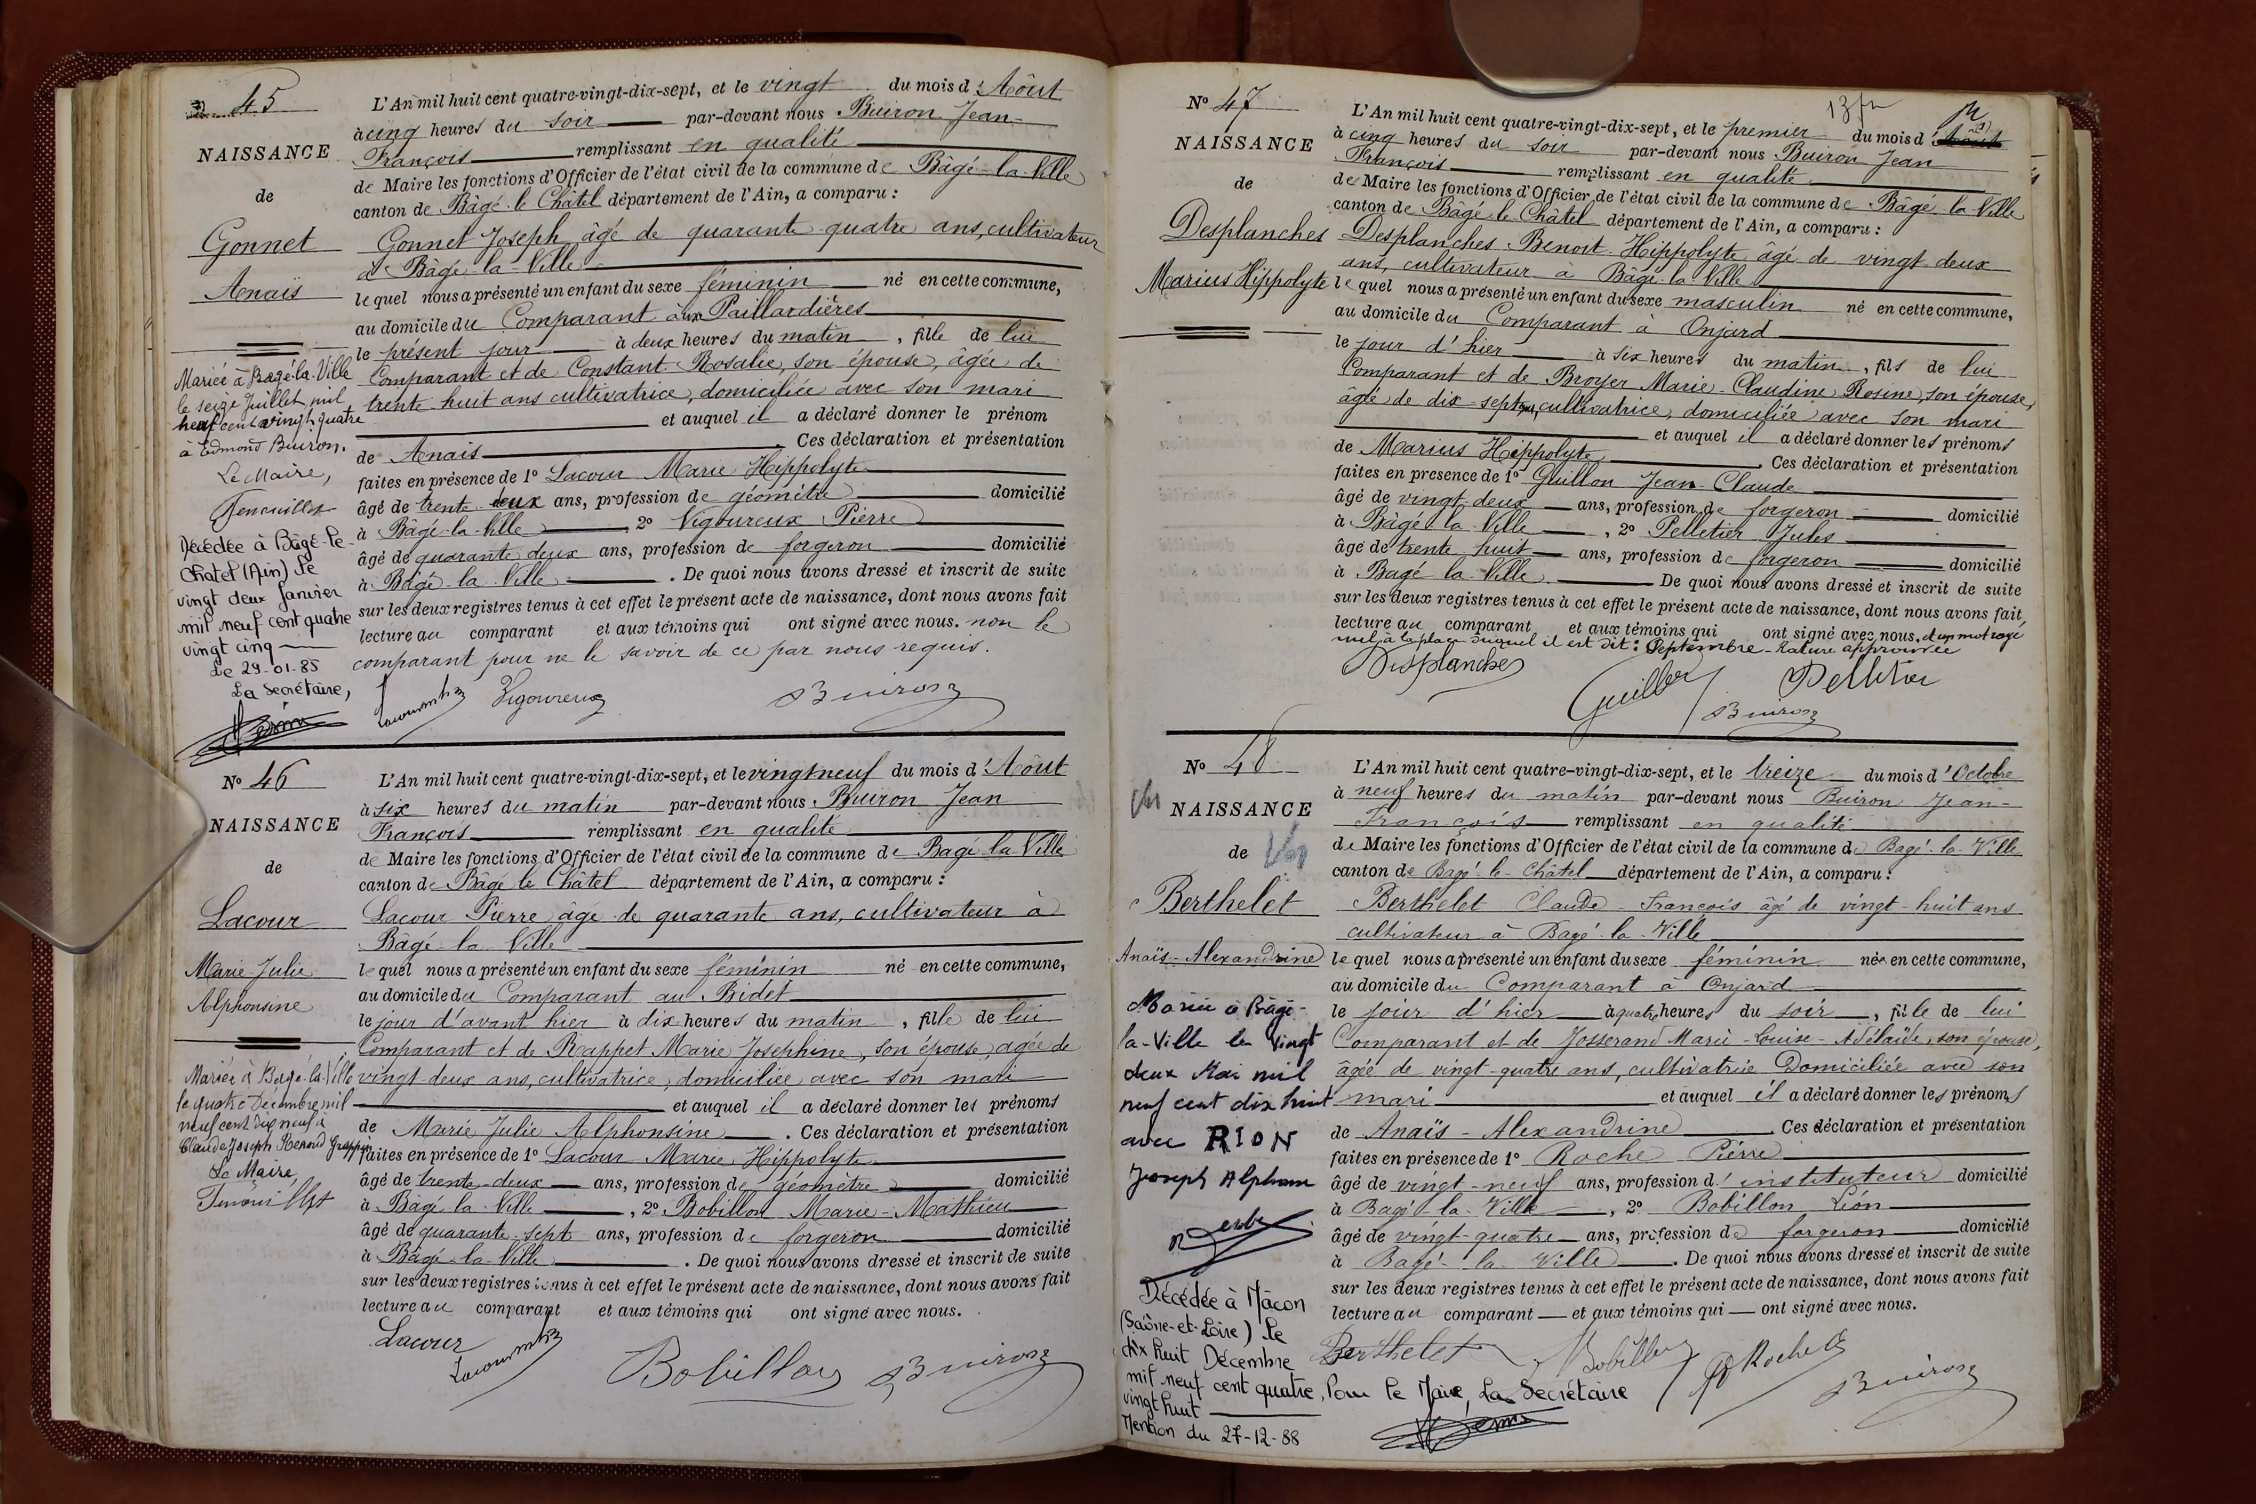 45
NAISSANCE
de
Gonnet
Anaïs
Mariée à Bagé-la-Ville
le seize Juillet mil
neuf cent vingt quatre
à Edmond Buiron.
Le Maire,
Décédée à Bâgé-le-
Chatel (Ain) le
vingt deux Janvier
mil neuf cent quatre
vingt cinq
Le 29-01-85
La Secrétaire,
L'An mil huit cent quatre-vingt-dix-sept, et le vingt du mois d'Aôut
à cinq heures du soir par-devant nous Buiron Jean-
François remplissant en qualité
de Maire les fonctions d'Officier de l'état civil de la commune de Bâgé-la-Ville
canton de Bâgé-le-Châtel département de l'Ain, a comparu :
Gonnet Joseph âgé de quarante-quatre ans, cultivateur
à Bâgé-la-Ville
lequel nous a présenté un enfant du sexe féminin né en cette commune,
au domicile du Comparant aux Paillardières
le présent jour à deux heures du matin, fille de lui
Comparant et de Constant Rosalie, son épouse, âgée de
trente huit ans cultivatrice, domiciliée avec son mari
et auquel il a déclaré donner le prénom
de Anaïs Ces déclaration et présentation
faites en présence de 1º Lacour Marie Hippolyte
âgé de trente deux ans, profession de géomètre domicilié
à Bâgé-la-Ville, 2º Vigoureux Pierre
âgé de quarante deux ans, profession de forgeron domicilié
à Bâgé-la-Ville. De quoi nous avons dressé et inscrit de suite
sur les deux registres tenus à cet effet le présent acte de naissance, dont nous avons fait
lecture au comparant et aux témoins qui ont signé avec nous. non le
comparant pour ne le savoir de ce par nous requis.
Vigoureux Buiron
Nº 46
NAISSANCE
de
Lacour
Marie-Julie
Alphonsine
Mariée à Bâgé-la-Ville
le quatre Décembre mil
neuf cent dix neuf à
Claude Joseph Renaud Grappin
Le Maire
L'An mil huit cent quatre-vingt-dix-sept, et le vingt neuf du mois d'Aôut
à six heures du matin par-devant nous Buiron Jean
François remplissant en qualité
de Maire les fonctions d'Officier de l'état civil de la commune de Bagé-la-Ville
canton de Bâgé-le-Châtel département de l'Ain, a comparu :
Lacour Pierre âgé de quarante ans, cultivateur à
Bâgé-la-Ville
lequel nous a présenté un enfant du sexe féminin né en cette commune,
au domicile du Comparant au Bidet
le jour d'avant hier à dix heures du matin, fille de lui
Comparant et de Rappet Marie Josephine, son épouse, agée de
vingt-deux ans, cultivatrice, domiciliée avec son mari
et auquel il a déclaré donner les prénoms
de Marie Julie Alphonsine. Ces déclaration et présentation
faites en présence de 1º Lacour Marie Hippolyte
âgé de trente-deux ans, profession de géomètre domicilié
à Bâgé-la-Ville, 2º Bobillon Marie-Mathieu
âgé de quarante-sept ans, profession de forgeron domicilié
à Bâgé-la-Ville. De quoi nous avons dressé et inscrit de suite
sur les deux registres tenus à cet effet le présent acte de naissance, dont nous avons fait
lecture au comparant et aux témoins qui ont signé avec nous.
Lacour
Bobillon Buiron
Nº 47
NAISSANCE
de
Desplanches
Marius Hippolyte
L'An mil huit cent quatre-vingt-dix-sept, et le premier du mois d'Aôut
à cinq heures du soir par-devant nous Buiron Jean
François remplissant en qualité
de Maire les fonctions d'Officier de l'état civil de la commune de Bâgé-la-Ville
canton de Bâgé-le-Châtel département de l'Ain, a comparu :
Desplanches Benoit Hippolyte âgé de vingt-deux
ans, cultivateur à Bâgé-la-Ville
lequel nous a présenté un enfant du sexe masculin né en cette commune,
au domicile du Comparant à Onjard
le jour d'hier à six heures du matin, fils de lui
Comparant et de Broyer Marie-Claudine Rosine, son épouse,
âgée de dix-sept ans, cultivatrice, domiciliée avec son mari
et auquel il a déclaré donner les prénoms
de Marius Hippolyte. Ces déclaration et présentation
faites en présence de 1º Guillon Jean-Claude
âgé de vingt-deux ans, profession de forgeron domicilié
à Bâgé-la-Ville, 2º Pelletier Jules
âgé de trente huit ans, profession de forgeron domicilié
à Bagé-la-Ville. De quoi nous avons dressé et inscrit de suite
sur les deux registres tenus à cet effet le présent acte de naissance, dont nous avons fait
lecture au comparant et aux témoins qui ont signé avec nous, et un mot rayé
nul, à la place duquel il est dit : Septembre - Rature approuvée
Desplanches
Guillon Pelletier
Buiron
Nº 48
NAISSANCE
de
Berthelet
Anaïs-Alexandrine
Mariée à Bâgé-
la-Ville le vingt
deux Mai mil
neuf cent dix huit
avec RION
Joseph Alphonse
Décédée à Mâcon
(Saône-et-Loire) le
dix huit Décembre
mil neuf cent quatre
vingt huit
Mention du 27-12-88
Pour le Maire, La Secrétaire
L'An mil huit cent quatre-vingt-dix-sept, et le treize du mois d'Octobre
à neuf heures du matin par-devant nous Buiron Jean-
François remplissant en qualité
de Maire les fonctions d'Officier de l'état civil de la commune de Bagé-la-Ville
canton de Bagé-le-Châtel département de l'Ain, a comparu :
Berthelet Claude-François âgé de vingt-huit ans
cultivateur à Bagé-la-Ville
lequel nous a présenté un enfant du sexe féminin née en cette commune,
au domicile du Comparant à Onjard
le jour d'hier à quatre heures du soir, fille de lui
Comparant et de Josserand Marie-Louise-Adélaïde, son épouse,
âgée de vingt-quatre ans, cultivatrice Domiciliée avec son
mari et auquel il a déclaré donner les prénoms
de Anaïs-Alexandrine Ces déclaration et présentation
faites en présence de 1º Roche Pierre
âgé de vingt-neuf ans, profession d'instituteur domicilié
à Bagé-la-Ville, 2º Bobillon Léon
âgé de vingt-quatre ans, profession de forgeron domicilié
à Bagé-la-Ville. De quoi nous avons dressé et inscrit de suite
sur les deux registres tenus à cet effet le présent acte de naissance, dont nous avons fait
lecture au comparant et aux témoins qui ont signé avec nous.
Berthelet Bobillon Roche
Buiron